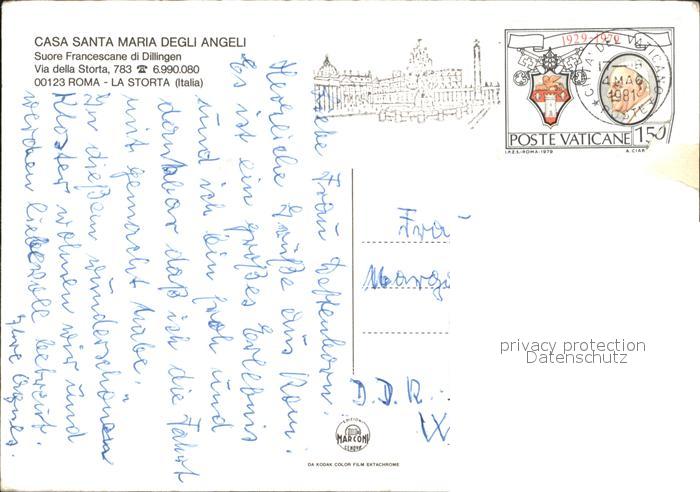 CASA SANTA MARIA DEGLI ANGELI
Suore Francescane di Dillingen
Via della Storta, 783 ☎ 6.990.080
00123 ROMA - LA STORTA (Italia)
1929-1979
CITTA' DEL VATICANO
MAG
1981
POSTE
POSTE VATICANE 150
I.P.Z.S.-ROMA-1979
A. CIAR
Liebe Frau
Herrliche Grüße aus Rom.
Es ist ein großes Erlebnis
und ich bin froh und
dankbar daß ich die Fahrt
mit gemacht habe.
In dießem wunderschönen
Kloster wohnen wir und
werden liebevoll betreut.
Ihre Agnes.
Frau
Marg
D.D.R.
W
privacy protection
Datenschutz
EDIZIONI
MARCONI
GENOVA
DA KODAK COLOR FILM EKTACHROME